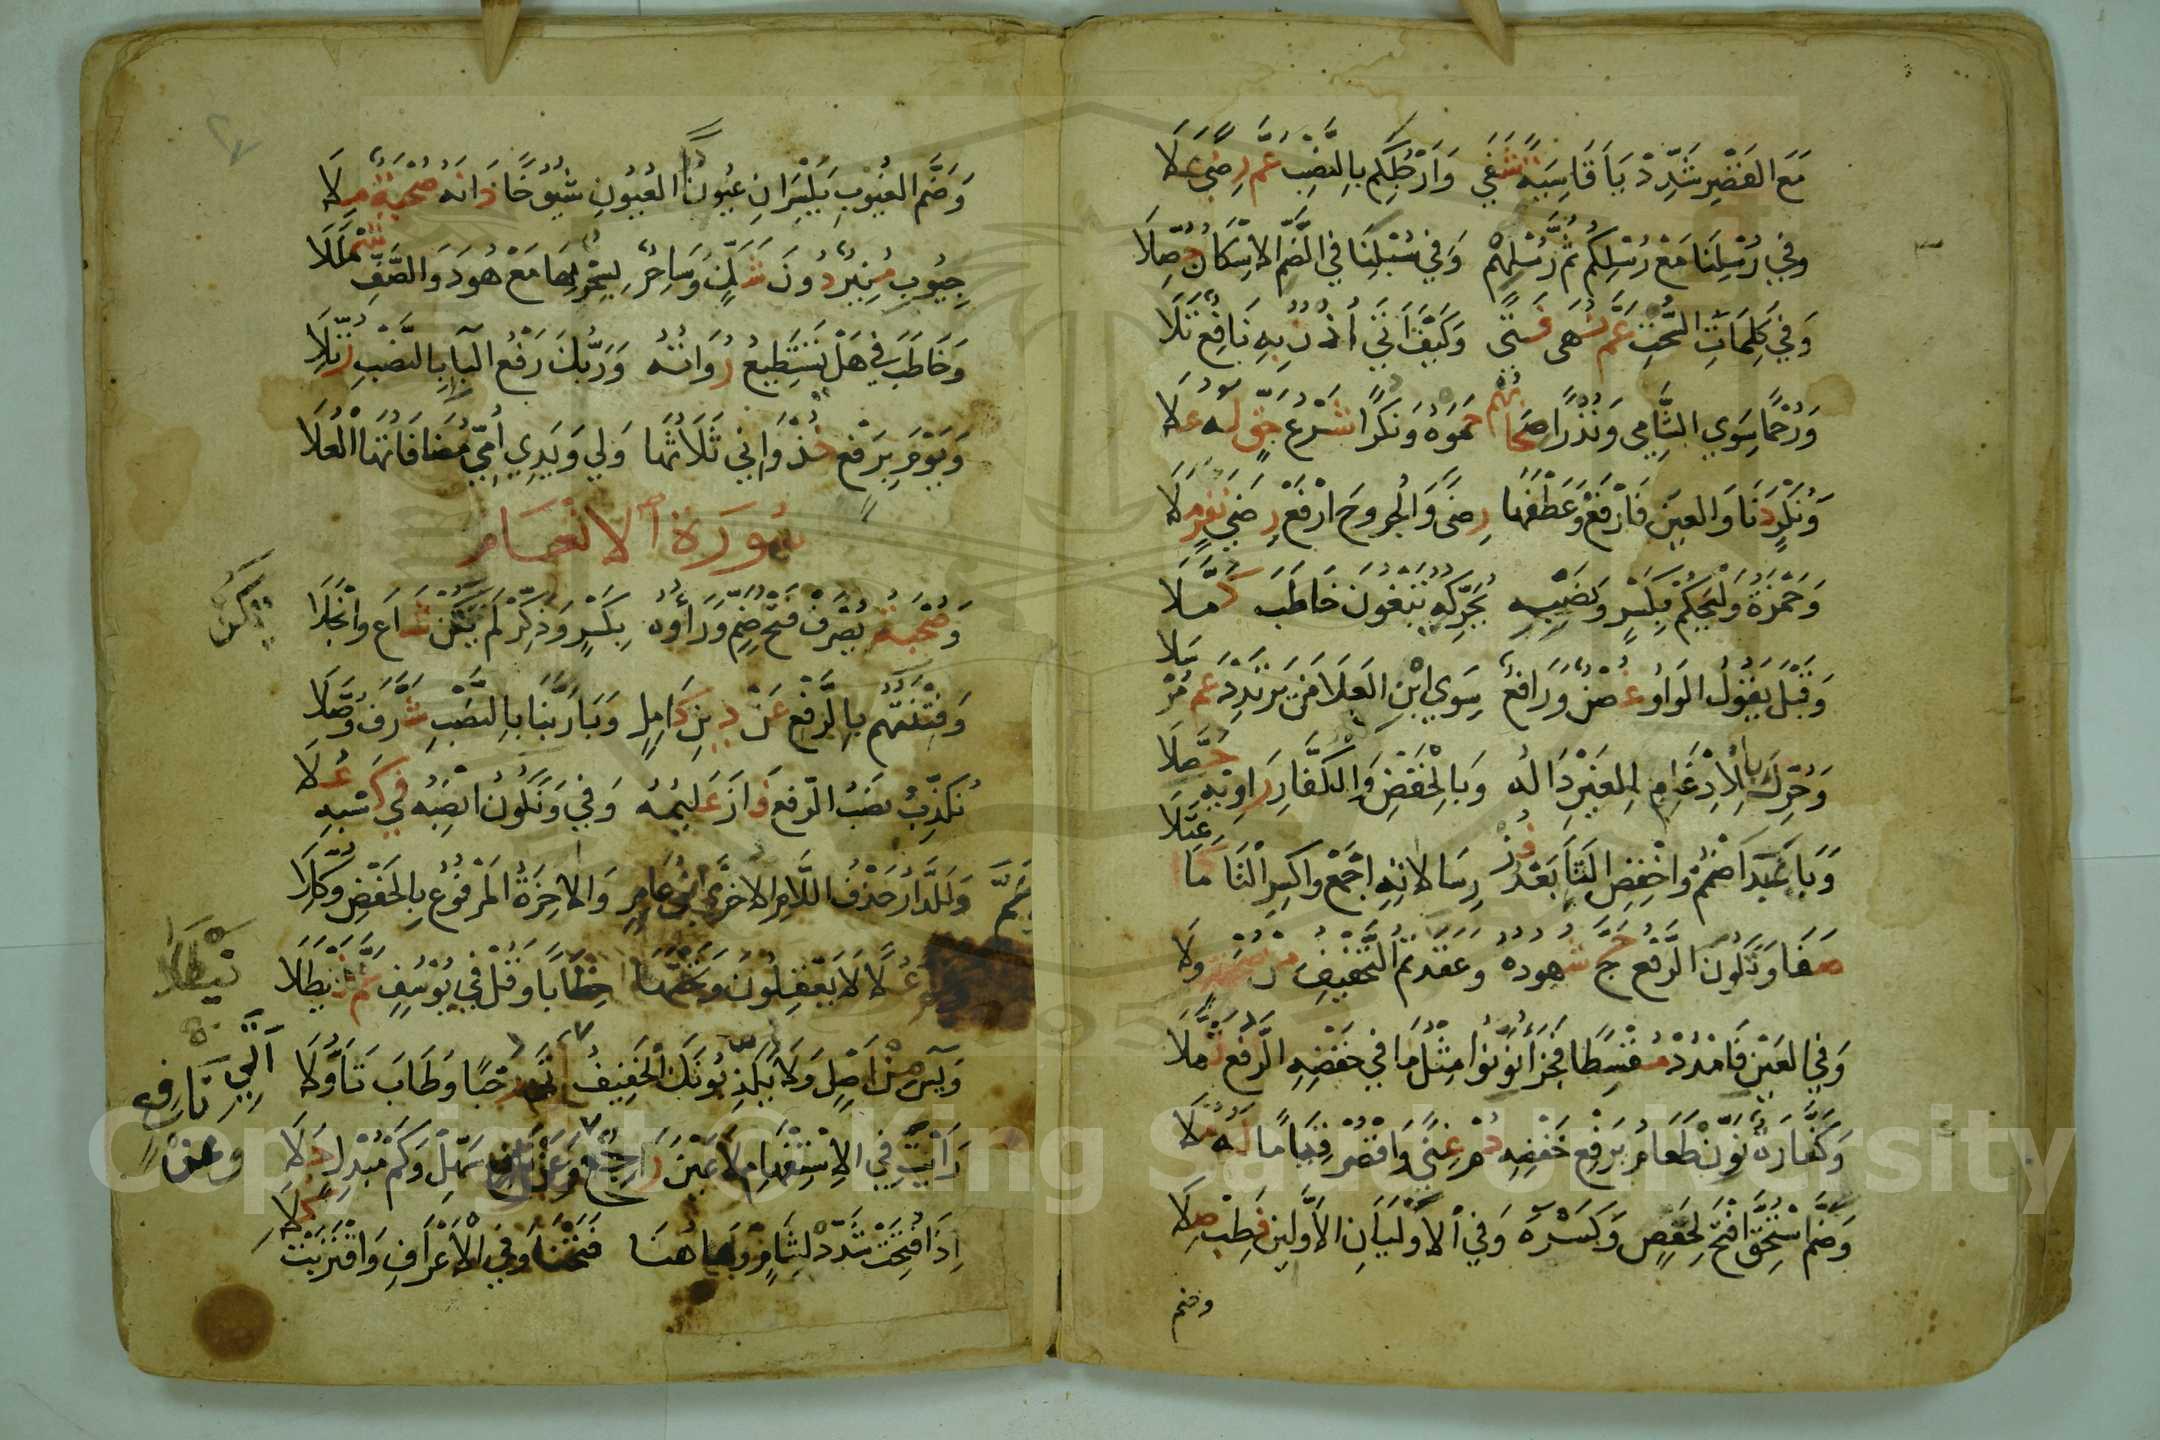 مَعَ القَصْرِ شَدِّدْ يَاءَ قَاسِيَةً شَفَى وَأَرْجُلِكُم بِالنَّصْبِ عَمَّ رِضًى عَلَا
وَفِي رُسْلِنَا مَعْ رُسْلِكُم ثُمَّ رُسْلِهُمْ وَفِي سُبْلِنَا فِي الضَّمِّ الاِسْكَانُ حُصِّلَا
وَفِي كَلِمَاتِ السُّحْتِ عَمَّ نُهَى فَتًى وَكَيْفَ أَتَى أُذْنٌ بِهِ نَافِعٌ تَلَا
وَرُحْمًا سِوَى الشَّامِي وَنُذْرًا صِحَابُهُمْ حَمَوْهُ وَنُكْرًا شَرْعُ حَقٍّ لَهُ عُلَا
وَنُكْرٍ دَنَا وَالعَيْنَ فَارْفَعْ وَعَطْفَهَا رِضًى وَالْجُرُوحَ ارْفَعْ رِضَى نَفَرٍ مَلَا
وَحَمْزَةُ وَلْيَحْكُمْ بِكَسْرٍ وَنَصْبِهِ يُحَرِّكُهُ تَبْغُونَ خَاطَبَ كُمَّلَا
وَقَبْلَ يَقُولُ الوَاوُ غُصْنٌ وَرَافِعٌ سِوَى ابْنِ العَلَا مَن يَرْتَدِدْ عَمَّ مُرْسَلَا
وَحُرِّكَ بِالْإِدْغَامِ لِلغَيْرِ دَالُهُ وَبِالْخَفْضِ وَالْكُفَّارَ رَاوِيهِ حَصَّلَا
وَبَا عَبَدَ اضْمُمْ وَاخْفِضِ التَّاءَ بَعْدُ فُزْ رِسَالَاتِهِ اجْمَعْ وَاكْسِرِ الْتَّا كَمَا اعْتَلَا
صَفَا وَتَكُونُ الرَّفْعُ حَجَّ شُهُودُهُ وَعَقَّدْتُمُ التَّخْفِيفُ مِنْ صُحْبَةٍ وَلَا
وَفِي العَيْنِ فَامْدُدْ مُقْسِطًا فَجَزَاءُ نَوْوِنُوا مِثْلُ مَا فِي خَفْضِهِ الرَّفْعُ ثُمَّلَا
وَكَفَّارَةٌ نَوِّنْ طَعَامُ بِرَفْعِ خَفْضِهِ دُمْ غِنًى وَاقْصُرْ قِيَامًا لَهُ مُلَا
وَضَمَّ اسْتُحِقَّ افْتَحْ لِحَفْصٍ وَكَسْرَهُ وَفِي الْأَوْلَيَانِ الأَوَّلِينَ فَطِبْ صِلَا
وضم
وَضَمُّ الغُيُوبِ يَكْسِرَانِ عُيُونًا العُيُونِ شُيُوخًا دَانَهُ صُحْبَةٌ مِلَا
جِيُوبِ مُنِيرٌ دُونَ شَكٍّ وَسَاحِرٌ بِسِحْرٌ بِهَا مَعْ هُودَ وَالصَّفِّ شَمْلَلَا
وَخَاطَبَ فِي هَلْ تَسْتَطِيعُ رُوَاتُهُ وَرَبُّكَ رَفْعُ البَاءِ بِالنَّصْبِ رُتِّلَا
وَيَوْمَ بِرَفْعٍ خُذْ وَإِنِّي ثَلَاثُهَا وَلِي وَيَدِي أُمِّي مُضَافَاتُهَا الْعُلَا
سُورَةُ الانْعَام
وَصُحْبَةُ يُصْرَفْ فَتْحُ ضَمٍّ وَرَاؤُهُ بِكَسْرٍ وَذَكِّرْ لَمْ يَكُنْ شَاعَ وَانْجَلَا
يكن
وَفِتْنَتُهُمْ بِالرَّفْعِ عَنْ دِينِ كَامِلٍ وَبَا رَبِّنَا بِالنَّصْبِ شَرَّفَ وُصَّلَا
نُكَذِّبُ نَصْبُ الرَّفْعِ فَازَ عَلِيمُهُ وَفِي وَنَكُونُ انْصِبْهُ فِي كَسْبِهِ عُلَا
وَلَلدَّارُ حَذْفُ اللَّامِ الاخْرَى ابْنُ عَامِرٍ وَالآخِرَةُ المَرْفُوعُ بِالخَفْضِ وُكِّلَا
وَعَمَّ عُلًا لَا يَعْقِلُونَ وَتَحْتَهَا خِطَابًا وَقُلْ فِي يُوسُفٍ عَمَّ نَيْطَلَا
نَيْطَلَا
وَيس مِنْ أَصْلٍ وَلَا يُكْذِبُونَكَ الْخَفِيفُ أَتَى رَحْبًا وَطَابَ تَأَوُّلَا
رَأَيْتَ فِي الاِسْتِفْهَامِ لَا عَيْنَ رَاجِعٌ وَعَنْ نَافِعٍ سَهِّلْ وَكَمْ مُبْدِلٍ جَلَا
وعن نافع
إِذَا فُتِحَتْ شَدِّدْ لِشَامٍ وَهَاهُنَا فَتَحْنَا وَفِي الْأَعْرَافِ وَاقْتَرَبَتْ كَلَا
Copyright © King Saud University